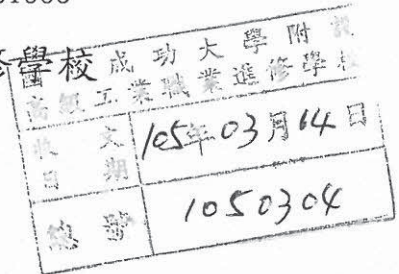 修學校
國立成功大學附設
高級工業職業進修學校
收文
日期
105年03月14日
總號
1050304